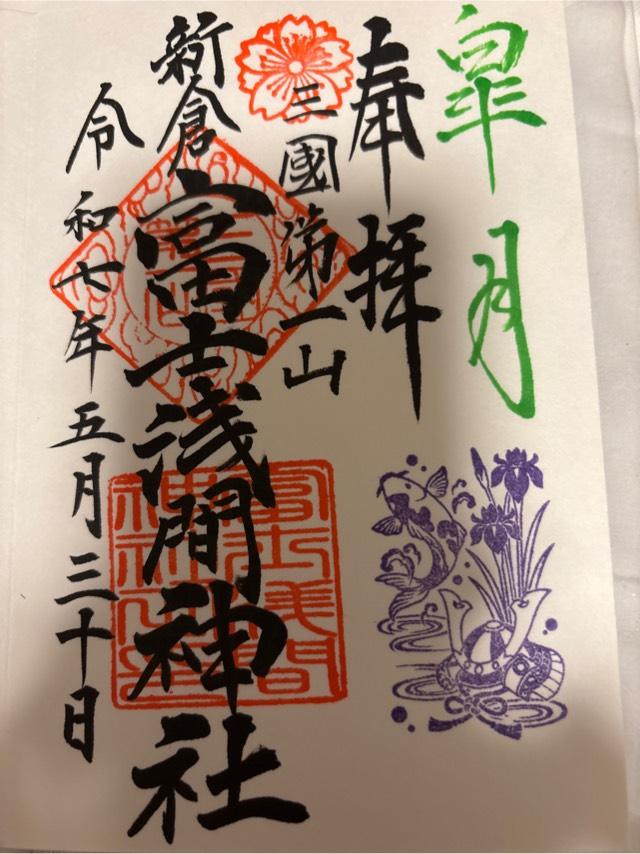 皐月
奉拝
三國第一山
新倉富士浅間神社
令和七年五月三十日